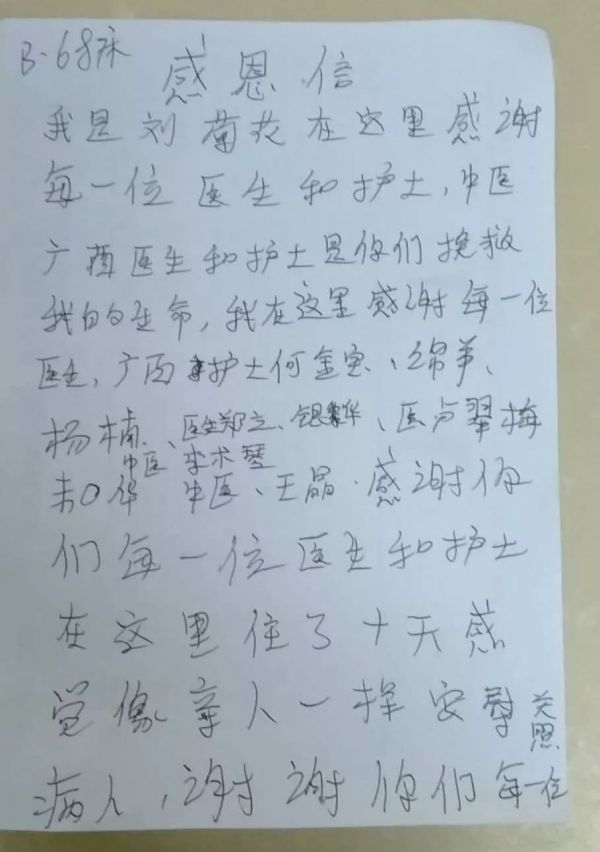 B-68床
感恩信
我是刘菊花在这里感谢
每一位医生和护士,中医
广西医生和护士是你们挽救
我的生命,我在这里感谢每一位
医生,广西护士何金宝、
杨楠、医生郑立、银华、医卢翠梅
中医 李术琴
华 中医、王晶.感谢你
们每一位医生和护士
在这里住了十天感
觉像亲人一样安慰关照
病人,谢谢你们每一位